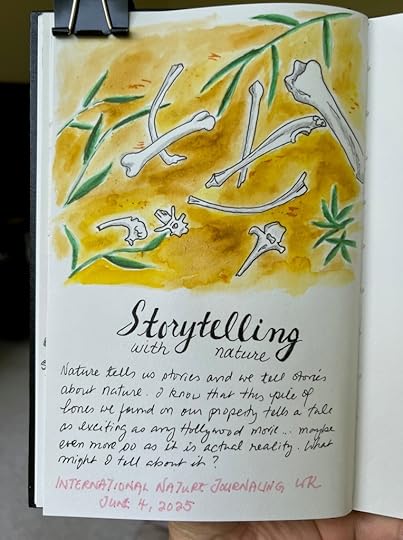 Storytelling
with nature
Nature tells us stories and we tell stories
about nature. I know that this pile of
bones we found on our property tells a tale
as exciting as any Hollywood movie... maybe
even more so as it is actual reality. What
might I tell about it?
INTERNATIONAL NATURE JOURNALING WK
JUNE 4, 2025